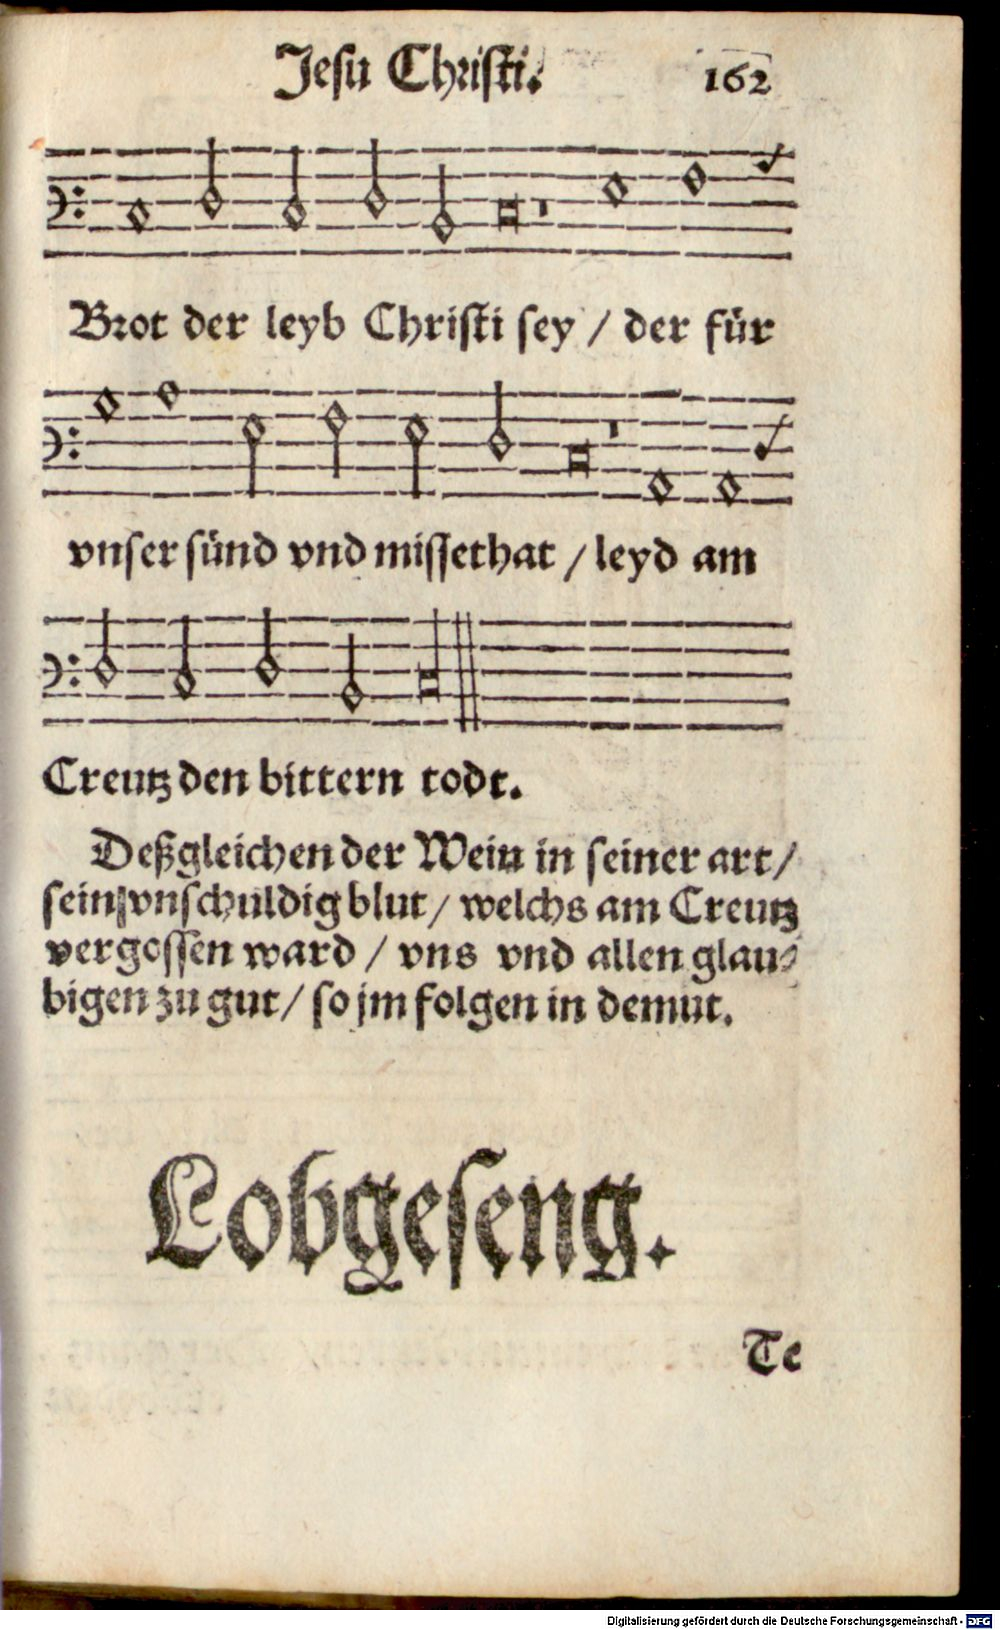 Jesu Christi. 162
Brot der leyb Christi sey / der für
vnser sünd vnd missethat / leyd am
Creutz den bittern todt.
Deßgleichen der Wein in seiner art /
sein vnschuldig blut / welchs am Creutz
vergossen ward / vns vnd allen glau⸗
bigen zu gut / so jm folgen in demut.
Lobgeseng.
Te
Digitalisierung gefördert durch die Deutsche Forschungsgemeinschaft - DFG